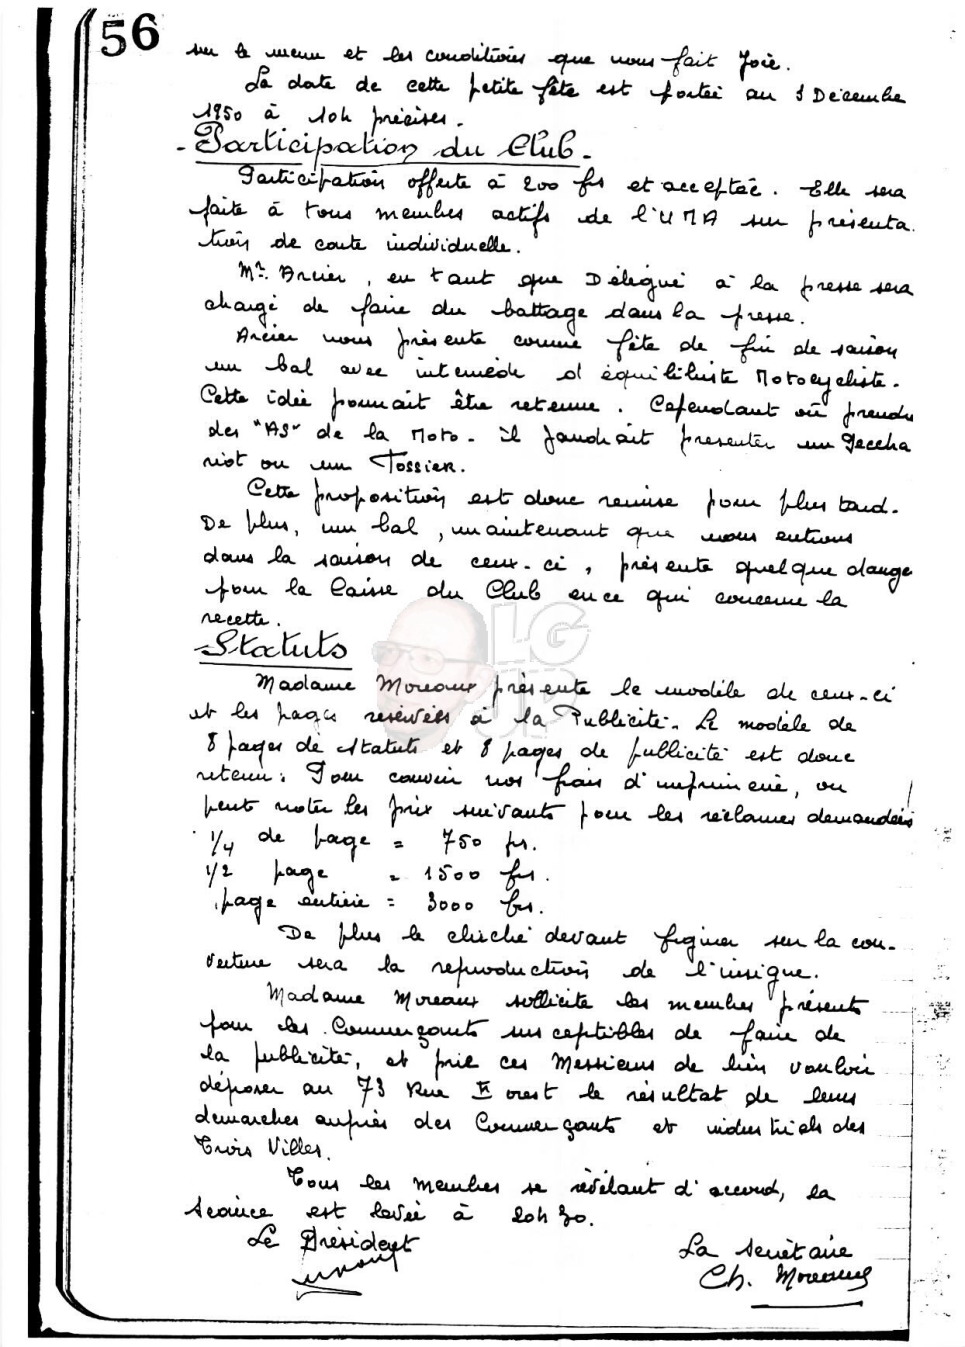 56
sur le menu et les conditions que nous fait Joie.
La date de cette petite fête est portée au Décembre
1950 à 10h précises.
- Participation du Club -
Participation offerte à 200 frs et acceptée. Elle sera
faite à tous membres actifs de l'UMA sur présenta
tion de carte individuelle.
Mr. Arcier, en tant que Délégué à la presse sera
chargé de faire du battage dans la presse.
Arcier nous présente comme fête de fin de saison
un bal avec intermède d'équilibriste Motocycliste.
Cette idée pourrait être retenue. Cependant où prendre
des "AS" de la Moto - il faudrait présenter un Peccha
riot ou un Tossier.
Cette proposition est donc remise pour plus tard.
De plus, un bal, maintenant que nous entrons
dans la saison de ceux-ci, présente quelque danger
pour la Caisse du Club en ce qui concerne la
recette.
Statuts
Madame Moreaux présente le modèle de ceux-ci
et les pages réservées à la Publicité. Le modèle de
8 pages de Statuts et 8 pages de publicité est donc
retenu. Pour couvrir nos frais d'imprimerie, on
peut noter les prix suivants pour les réclames demandées
1/4 de page = 750 frs.
1/2 page = 1500 frs.
page entière = 3000 frs.
De plus le cliché devant figurer sur la cou-
verture sera la reproduction de l'insigne.
Madame Moreaux sollicite les membres présents
pour les Commerçants susceptibles de faire de
la publicité, et prie ces Messieurs de bien vouloir
déposer au 73 Rue le résultat de leurs
démarches auprès des Commerçants et industriels des
Trois Villes.
Tous les membres se révélant d'accord, la
Séance est levée à 20h30.
Le Président
La Secrétaire
Ch. Moreaux
LG
JP